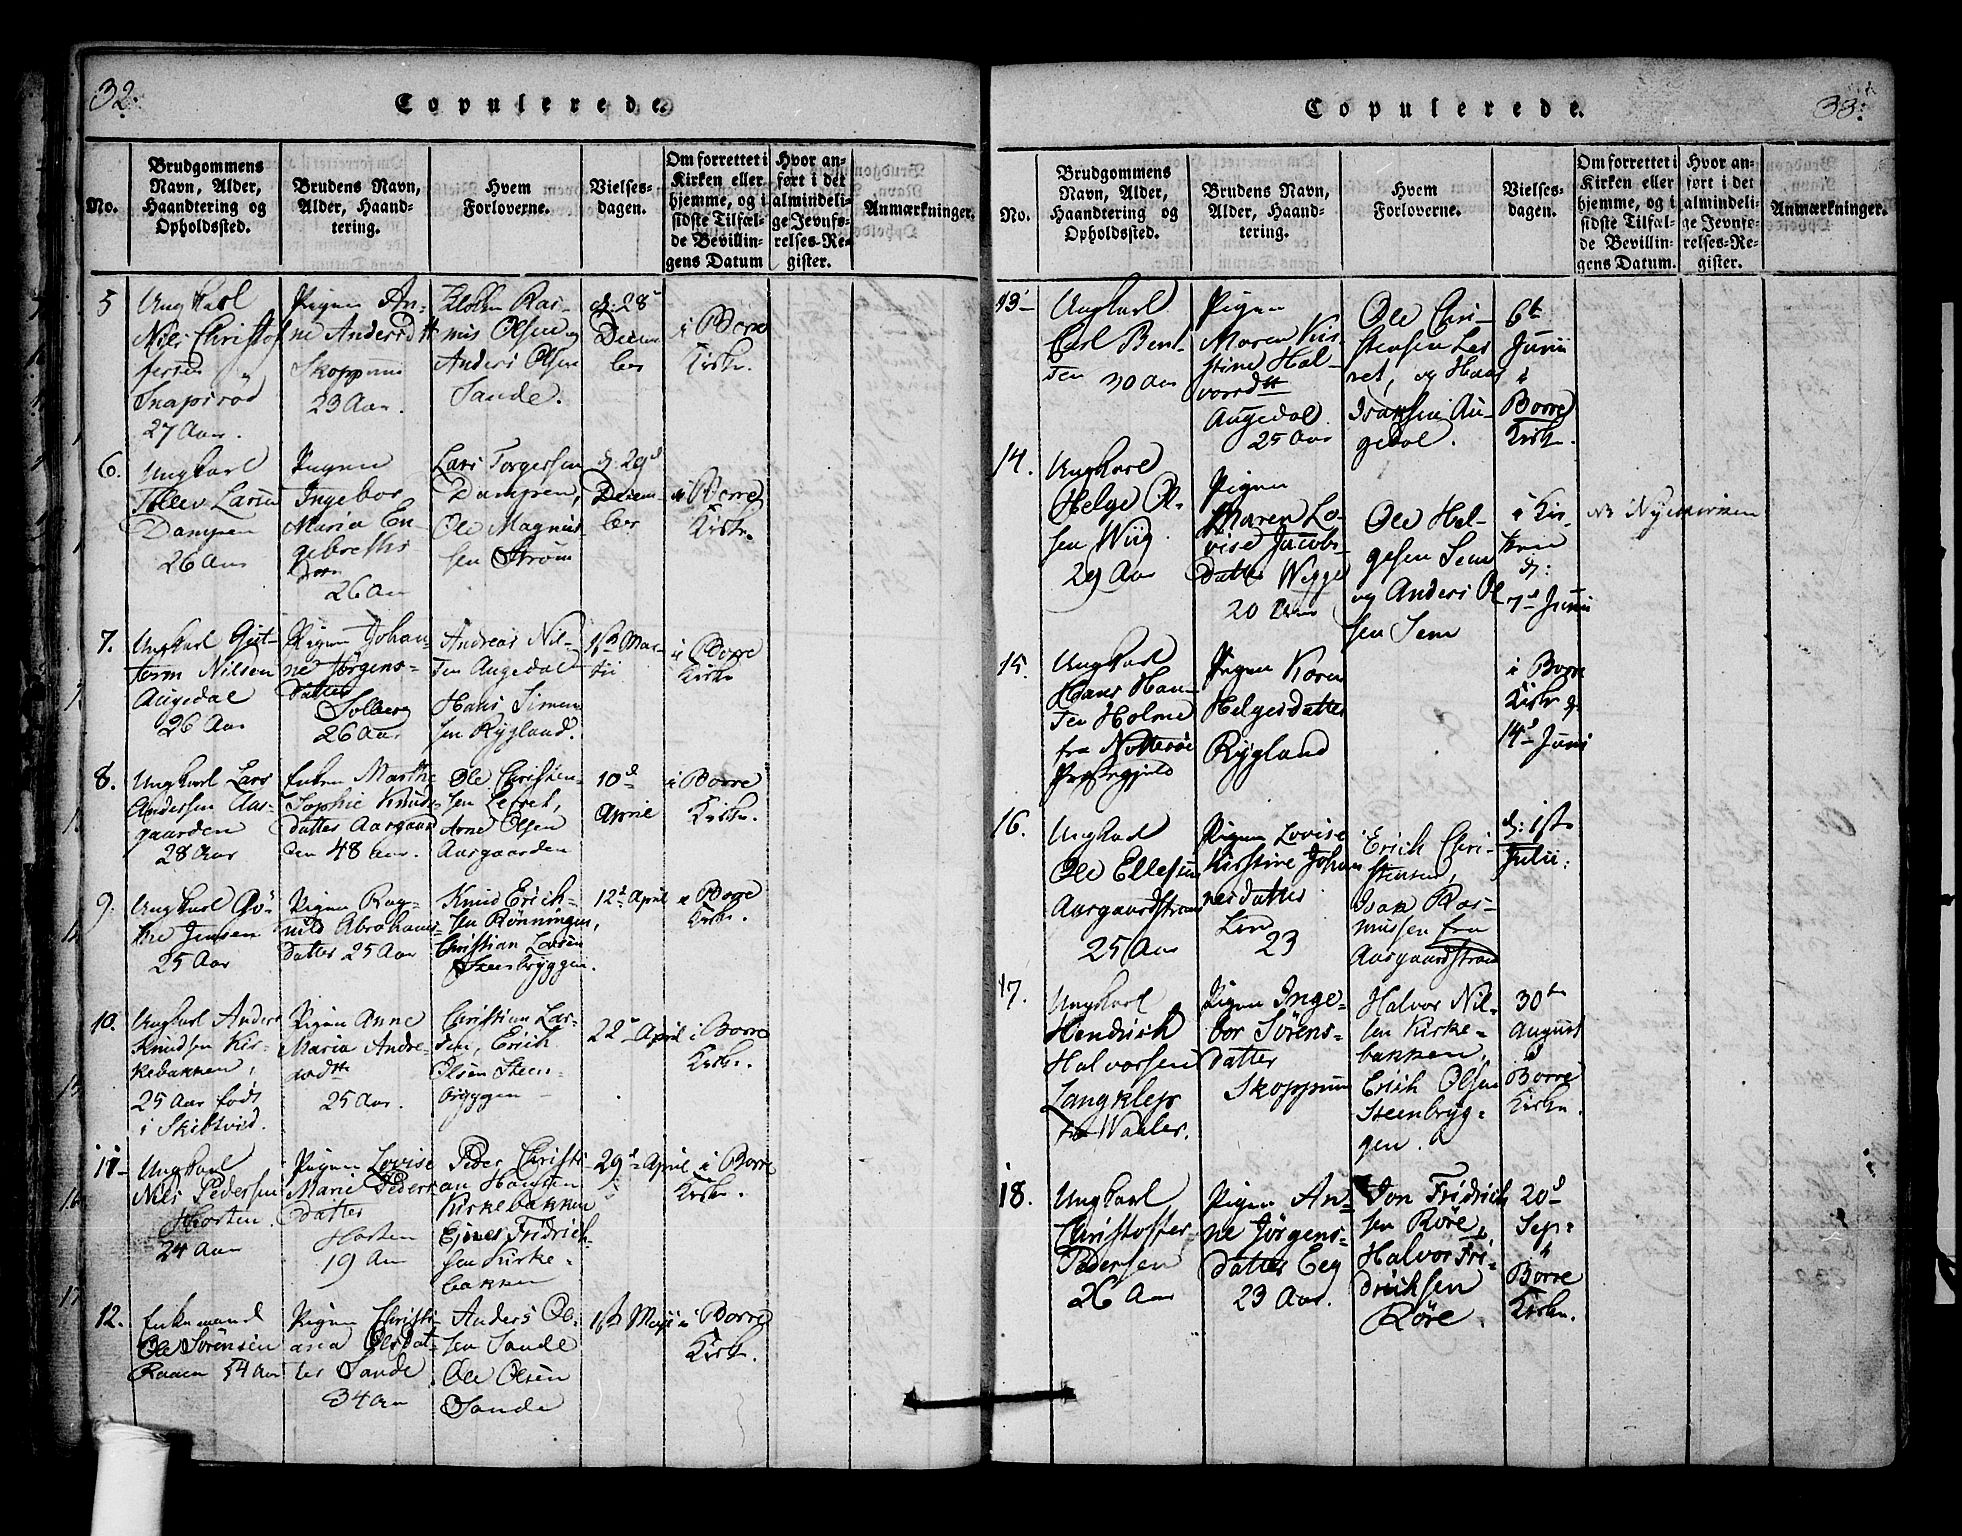 32.
Copulerede.
No.
Brudgommens
Navn, Alder,
Haandtering og
Opholdssted.
Brudens Navn,
Alder, Haand-
tering.
Hvem
Forloverne.
Vielses-
dagen.
Om forrettet i
Kirken eller
hjemme, og i
sidste Tilfæl-
de Bevillin-
gens Datum
Hvor an-
ført i det
almindeli-
ge Jevnfø-
relses-Re-
gister.
Anmærkninger.
5
Ungkarl
Nils Christof
fersen
Snapsrød
27 Aar.
Pigen An-
ne Andersdtt
Skoppum
23 Aar.
Ras-
mus Olsen og
Anders Olsen
Sande.
d: 28d
Decem
ber
i Borre
Kirke.
6.
Ungkarl
Tollev Larsen
Dampen
26 Aar
Pigen
Ingebor
Maria En-
gebreths
26 Aar
Lars Torgersen
Dampen,
Ole Magnus
sen Strøm
d. 29d
Decem-
ber
i Borre
Kirke.
7.
Ungkarl Gut-
torm Nilsen
Augedal
26 Aar
Pigen Johan-
ne Jørgens-
datter
Solberg
26 Aar
Andreas Nil-
sen Augedal
Hans Simen
sen Rygland.
1ste Mar-
tii
i Borre
Kirke
8.
Ungkarl Lars
Andersen Aas-
gaarden
28 Aar
Enken Marthe
Sophie Knuds-
datter Aasgaard
en 48 aar.
Ole Christen-
sen Lesret,
Arne Olsen
Aasgaarden
10d
April
i Borre
Kirke.
9.
Ungkarl Gö-
the Jensen
25 Aar
Pigen Rag-
nild Abrahams-
datter 25 Aar
Knud Erich-
sen Rønningen,
Christian Larsen
Steenbryggen.
12d April
i Borre
Kirke.
10.
Ungkarl Anders
Knudsen Kir-
kebakken,
25 Aar født
i Skibtvid.
Pigen Anne
Maria Andre-
asdtt
25 Aar.
Christian Lar-
sen, Erich
Olsen Steen-
bryggen
22d April
i Borre
Kirke.
11
Ungkarl
Nils Pedersen
Horten.
24 Aar
Pigen Lovise
Marie Peders
datter
Horten
19 Aar
Peder Christi-
an Hansen
Kirkebakken
Ejner Fridrich-
sen Kirke-
bakken
29d April
i Borre
Kirke.
12.
Enkemand
Ole Sørensen
Raaen 54 Aar
Pigen Christi-
ana Olsdat-
ter Sande
34 Aar
Anders Ol-
sen Sande
Ole Olsen
Sande
1ste Maji
i Borre
Kirke.
33.
Copulerede.
No.
Brudgommens
Navn, Alder,
Haandtering og
Opholdssted.
Brudens Navn,
Alder, Haand-
tering.
Hvem
Forloverne.
Vielses-
dagen.
Om forrettet i
Kirken eller
hjemme, og i
sidste Tilfæl-
de Bevillin-
gens Datum.
Hvor an-
ført i det
almindeli-
ge Jevnfø-
relses-Re-
gister.
Anmærkninger.
13
Ungkarl
Carl Bent-
sen 30 Aar
Pigen
Maren Kir-
stine Hal-
vorsdtt
Augedal
25 Aar
Ole Chri-
stensen Les
ret, og Hans
Isaksen Au-
gedal.
6te
Junii
i
Borre
Kirke.
14.
Ungkarl
Helge Ol-
sen Wiig
29 Aar
Pigen
Maren Lo-
vise Jacobs-
datter Wegge
20 Aar
Ole Hel-
gesen Sem
og Anders Ol
sen Sem
i Kir-
ken
d:
7d Junii
i Nykirken
15.
Ungkarl
Hans Han-
sen Holme
fra Nøtterøe
Præstegjeld
Pigen Karen
Helgesdatter
Rygland
i Borre
Kirke d.
14d Juni
16.
Ungkarl
Ole Ellefsen
Aasgaardstrand
25 Aar
Pigen Lovise
Kirstine Johan
nesdatter
Lem
23
Erich Chri-
stensen,
Isak Ras-
mussen fra
Aasgaardstrand
d: 1ste
Julii.
17.
Ungkarl
Hendrich
Halvorsen
Langklep
fra Waaler.
Pigen Inge-
bor Sørens-
datter
Skoppum
Halvor Nil-
sen Kirke-
bakken,
Erich Olsen
Steenbryg-
gen.
30te
August
i
Borre
Kirke.
18.
Ungkarl
Christoffer
Pedersen
26 Aar
Pigen An-
ne Jørgens-
datter Eeg
23 Aar.
Jon Fridrich
sen Røre,
Halvor Fri-
drichsen
Røre.
20d
Sep:
i
Borre
Kirke.